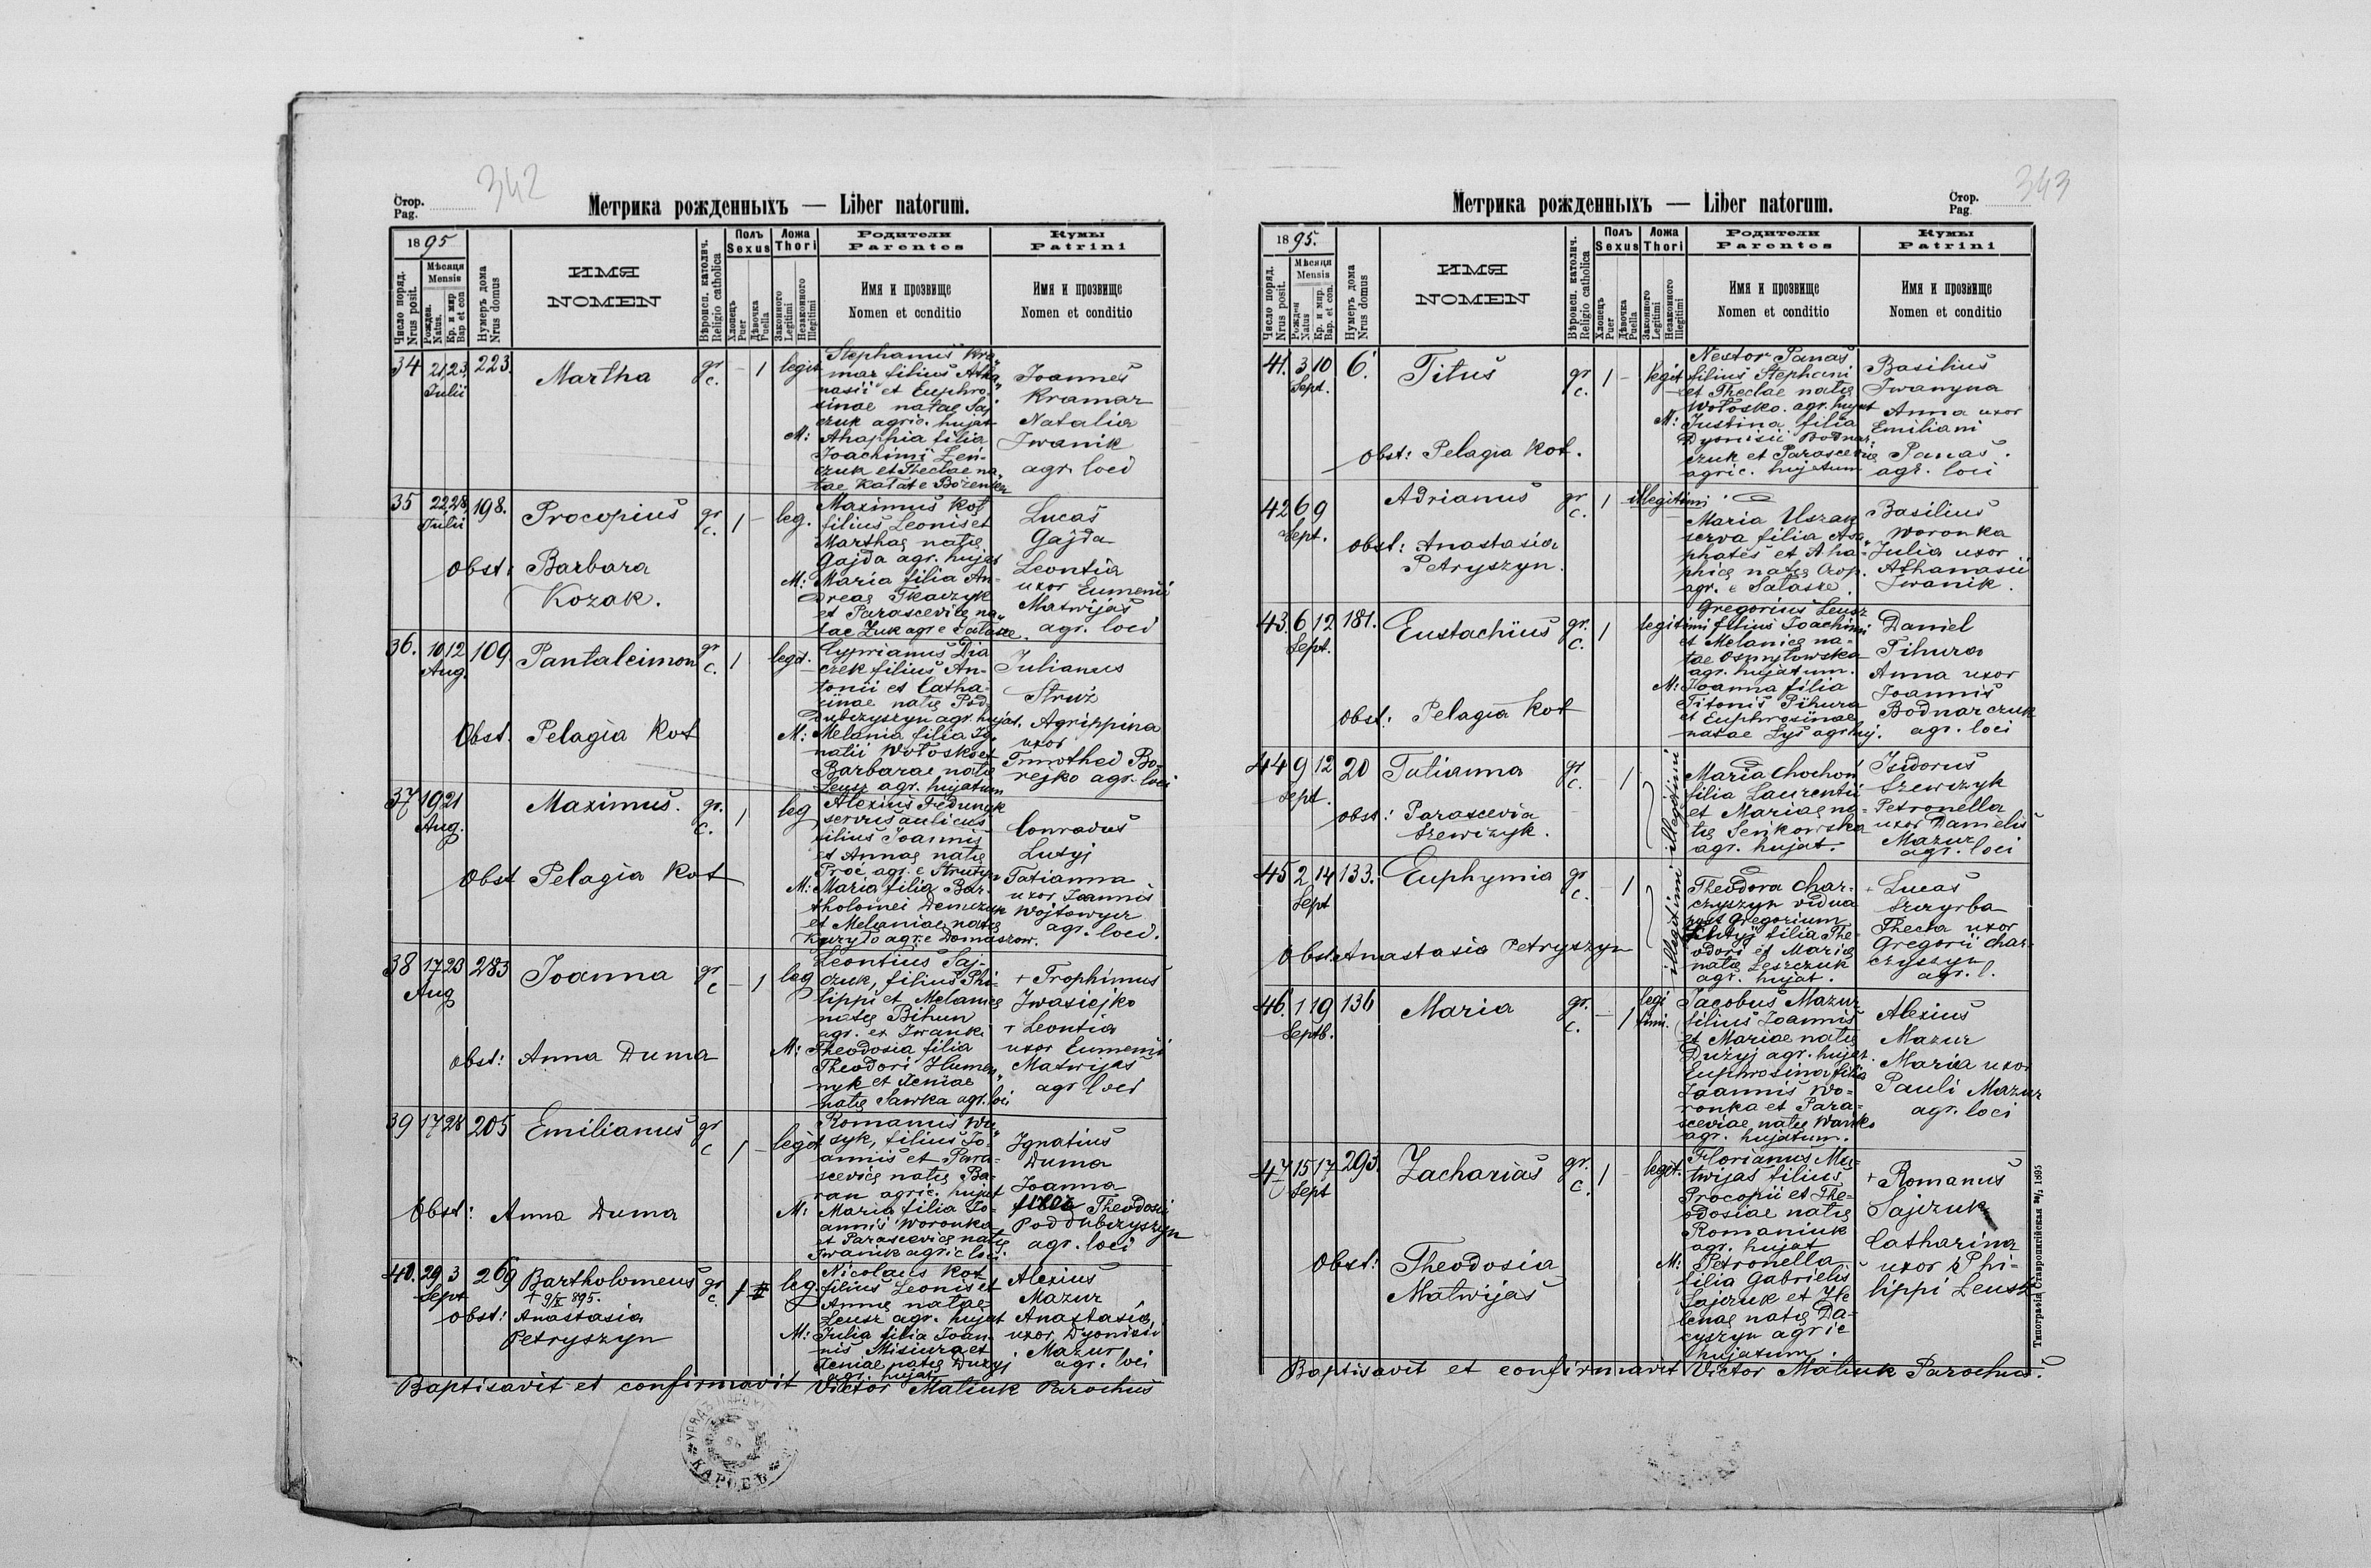 342
Стор.
Pag.
Метрика рожденныхъ — Liber natorum.
1895
Число поряд.
Nrus posit.
Мѣсяця
Mensis
Рожден.
Natus.
Кр. и мир
Bap et con
Нумеръ дома
Nrus domus
ИМЯ
NOMEN
Вѣроисп. католич.
Religio catholica
Полъ
Sexus
Хлопецъ
Puer
Дѣвочка
Puella
Ложа
Thori
Законного
Legitimi
Незаконного
Illegitimi
Родители
Parentes
Имя и прозвище
Nomen et conditio
Кумы
Patrini
Имя и прозвище
Nomen et conditio
34 21 23 Julii 223. Martha gr c. - 1 legit
Stephanus Kra-
mar filius Atha-
nasii et Euphro-
sinae natae Saj
czuk agric. hujat
M: Ahaphia filia
Joachimi Leń-
czuk et Theclae na-
tae Katat e
Joannes
Kramar
Natalia
Iwanik
agr. loci
35 22 28 Julii 198. Procopius gr c. 1 - leg.
obst: Barbara
Kozak.
Maximus Kot
filius Leonis et
Marthae natę
Gajda agr. hujat
M: Maria filia An-
dreae Tkaczyk
et Parascevię na-
tae Żuk agr e Sałasze.
Lucas
Gajda
Leontia
uxor Eumenii
Matwijas
agr. loci
36. 10 12 Aug. 109 Pantaleimon gr c. 1 legit.
Obst. Pelagia Kot
Cyprianus Dia
czek filius An-
tonii et Catha-
rinae natę Pod
dubczyszyn agr. hujat.
M: Melania filia Ig-
natii Wołosko et
Barbarae natę
Leusz agr. hujatum
Julianus
Struż
Agrippina
uxor
Timothei Bo-
rejko agr. loci
37 19 21 Aug. Maximus. gr. c. 1 leg
Obst Pelagia Kot
Alexius Fedunyk
servus aulicus
filius Joannis
et Annae natę
Proc agr. e Strutyn
M: Maria filia Bar-
tholomei Demczuk
et Melaniae natę
Kuzyło agr. e Domaszow.
Conradus
Lutyj
Tatianna
uxor Joannis
Wojtowycz
agr. loci.
38 17 23 Aug 283 Joanna gr c - 1 leg
obst: Anna Duma
Leontius Saj-
czuk, filius Phi-
lippi et Melanię
natę Bihun
agr. ex Iwanki
M: Theodosia filia
Theodori Humen-
nyk et Xeniae
natę Sawka agr. loci
+ Trophimus
Iwasiejko
+ Leontia
uxor Eumenii
Matwijas
agr loci
39 17 28 205 Emilianus gr c 1 - legit
Obst: Anna Duma
Romanus Wu
syk, filius Jo-
annis et Para-
scevię natę Ba-
ran agric. hujat
M: Maria filia Jo-
annis Woronka
et Parascevię natę
Iwanik agric loci.
Ignatius
Duma
Joanna
uxor Theodosii
Poddubczyszyn
agr. loci
40. 29 3 Sept 269 Bartholomeus gr c. 1 leg
+ 9/X 895.
obst: Anastasia
Petryszyn
Nicolaus Kot
filius Leonis et
Annę natae
Leusz agr. hujat
M: Julia filia Joan-
nis Misiura et
Xeniae natę Dużyj
agr. hujat
Alexius
Mazur
Anastasia,
uxor Dyonisii
Mazur
agr. loci
Baptisavit et confirmavit Victor Maliuk Parochus
343
Стор.
Pag
Метрика рожденныхъ — Liber natorum.
1895.
Число поряд.
Nrus posit.
Мѣсяця
Mensis
Рожден
Natus
Кр. и мир.
Bap. et con.
Нумеръ дома
Nrus domus
ИМЯ
NOMEN
Вѣроисп. католич.
Religio catholica
Полъ
Sexus
Хлопецъ
Puer
Дѣвочка
Puella
Ложа
Thori
Законного
Legitimi
Незаконного
Illegitimi
Родители
Parentes
Имя и прозвище
Nomen et conditio
Кумы
Patrini
Имя и прозвище
Nomen et conditio
41. 3 10 Sept. 6. Titus gr c. 1 - legit
obst: Pelagia Kot.
Nestor Panas
filius Stephani
et Theclae natę
Wołosko. agr. hujat
M: Justina filia
Dyonisii Bodnar-
czuk et Parascevię
agric. hujatum
Basilius
Iwanyna
Anna uxor
Emiliani
Panas.
agr. loci
42 6 9 Sept. Adrianus gr c. 1 - illegitimi
obst: Anastasia
Petryszyn.
Maria Uszak
serva filia
phates et Aha-
phię natę
agr. e Sałasze.
Basilius
Woronka
Julia uxor
Athanasii
Iwanik.
43. 6 12 Sept. 181. Eustachius gr. c. 1 legitimi
obst: Pelagia Kot
Gregorius Leusz
filius Joachimi
et Melanię na-
tae Osmyłowska
agr. hujatum.
M: Joanna filia
Titonis Pihura
et Euphrosinae
natae Łys agr huj.
Daniel
Tihura
Anna uxor
Joannis
Bodnarczuk
agr. loci
44 9 12 Sept. 20 Tatianna gr c. - 1 illegitimi
obst: Parascevia
Szewczyk.
Maria Chochoń
filia Laurentii
et Mariae na-
tę Senkowska
agr. hujat.
Isidorus
Szewczyk
Petronella
uxor Danielis
Mazur
agr. loci
45 2 14 Sept 133. Euphymia gr c. - 1 illegitimi
Obst: Anastasia Petryszyn
Theodora Char-
czyszyn vidua
post Gregorium
Lutyj filia The-
odori et Marię
natę Leszczuk
agr. hujat.
+ Lucas
Szczyrba
Thecla uxor
Gregorii Char-
czyszyn
agr. l.
46. 1 19 Septb. 136 Maria gr. c. - 1 legi
timi.
Jacobus Mazur
filius Joannis
et Mariae natę
Dużyj agr. hujat.
Euphrosina filia
Joannis Wo-
ronka et Para-
sceviae natę Wańko
agr. hujatum.
Alexius
Mazur
Maria uxor
Pauli Mazur
agr. loci
47 15 17 Sept 293. Zacharias gr. c. 1 - legit.
Obst: Theodosia
Matwijas
Florianus Ma-
twijas filius
Procopii et The-
odosiae natę
Romaniuk
agr. hujat
M: Petronella
filia Gabrielis
Sajczuk et He
lenae natę Da-
cyszyn agric
hujatum.
+ Romanus
Sajczuk
Catharina
uxor Phi-
lippi Leusz
Baptisavit et confirmavit Victor Maliuk Parochus.